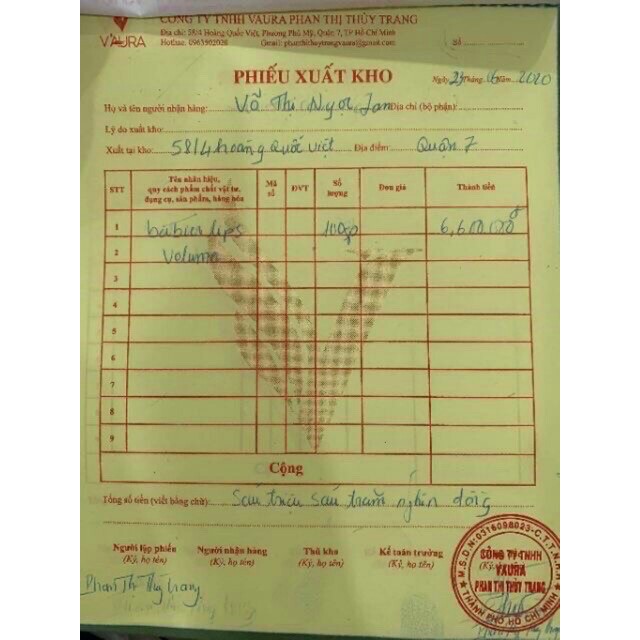 VAURA
CÔNG TY TNHH VAURA PHAN THỊ THÙY TRANG
Địa chỉ: 58/4 Hoàng Quốc Việt, Phường Phú Mỹ, Quận 7, TP Hồ Chí Minh
Hotline: 0963502028 Gmail: phanthithuytrangvaura@gmail.com
Số
PHIẾU XUẤT KHO
Ngày 23 Tháng 6 Năm 2020
Họ và tên người nhận hàng: Võ Thị Ngọc Lan Địa chỉ (bộ phận)
Lý do xuất kho:
Xuất tại kho: 58/4 hoàng Quốc Việt Địa điểm: Quận 7
STT Tên nhãn hiệu, quy cách phẩm chất vật tư, dụng cụ, sản phẩm, hàng hóa Mã số ĐVT Số lượng Đơn giá Thành tiền
1 babier lips 6,600.000đ
2 volume
3
4
5
6
7
8
9
Cộng
Tổng số tiền (viết bằng chữ): Sáu triệu sáu trăm nghìn đồng
Người lập phiếu Người nhận hàng Thủ kho Kế toán trưởng
(Ký, họ tên) (Ký, họ tên) (Ký, họ tên) (Ký, họ tên)
Phan Thị Thùy Trang
M.S.D.N:0316098023-C.T.T.N.H.H
CÔNG TY TNHH
VAURA
PHAN THỊ THÙY TRANG
THÀNH PHỐ HỒ CHÍ MINH